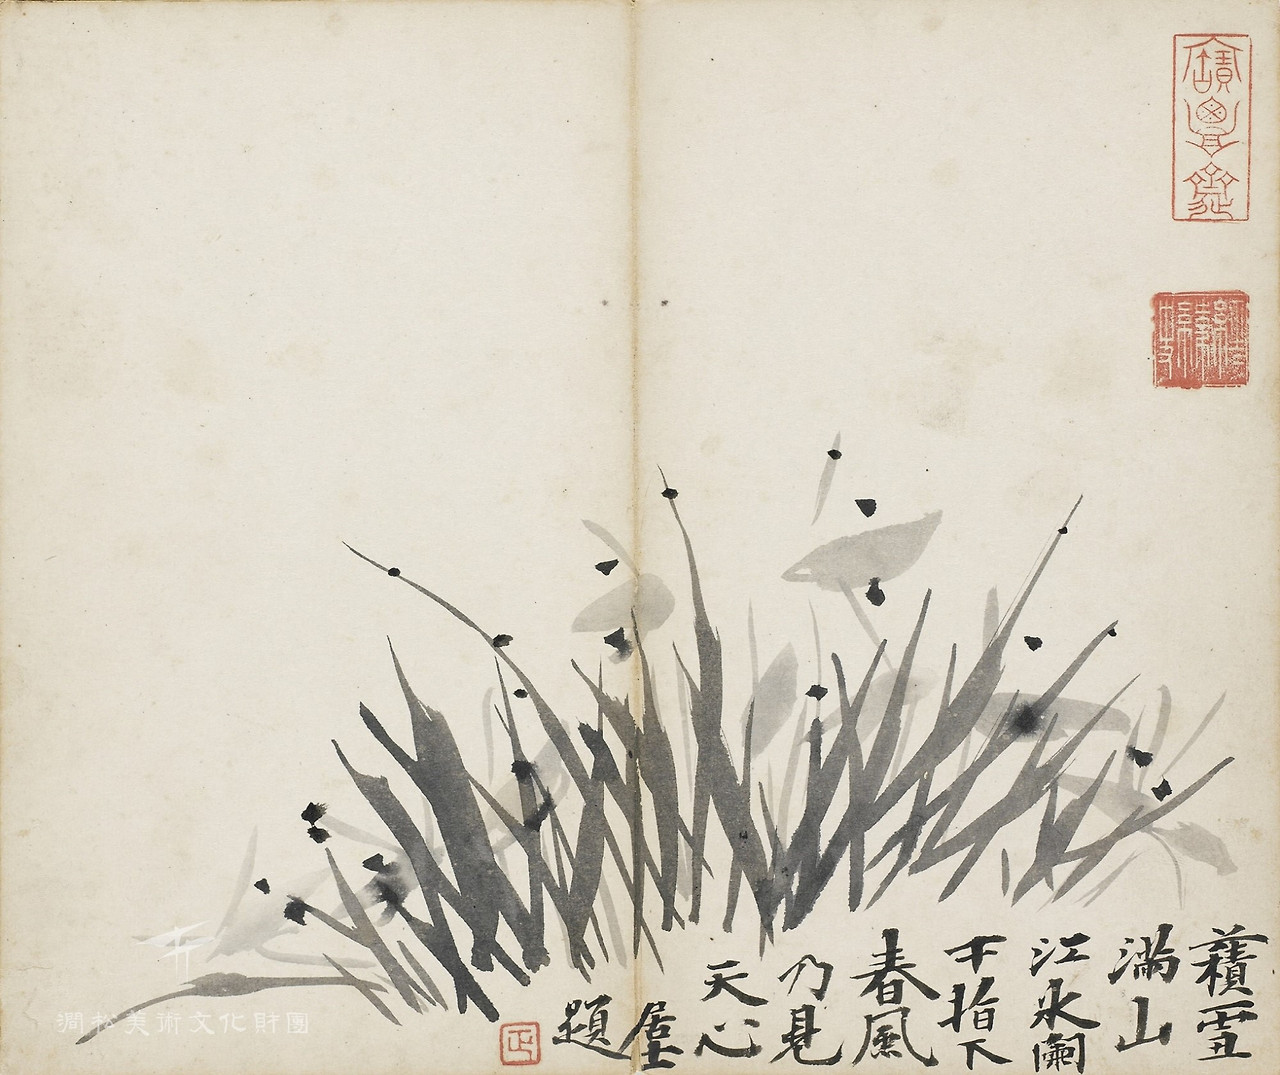 寶覃齋
積雪
滿山
江氷闌
干指下
春風
乃見
天心
居士
題
澗松美術文化財團